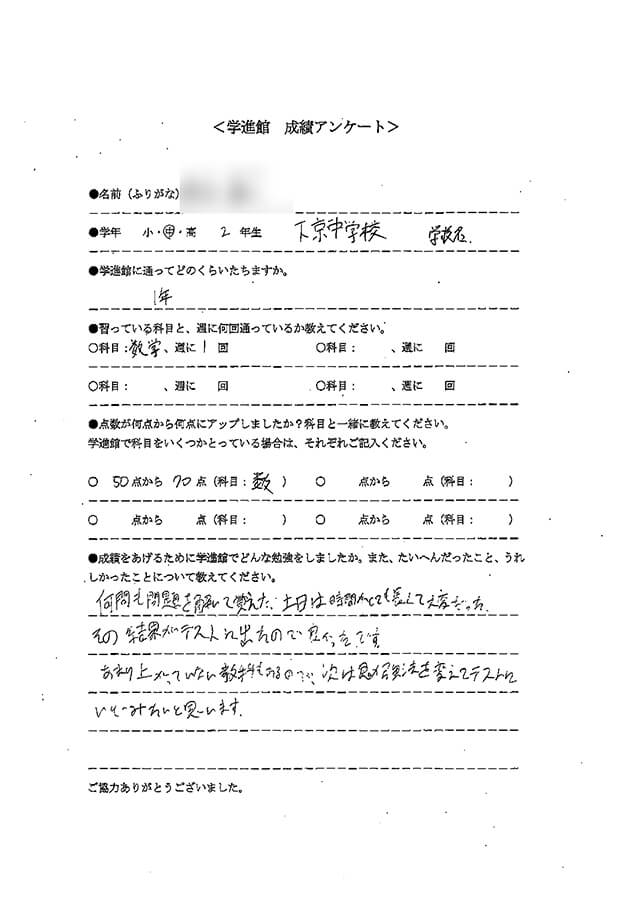 ＜学進館　成績アンケート＞
●名前（ふりがな）
●学年　小・中・高　2　年生　下京中学校　学校名.
●学進館に通ってどのくらいたちますか。
1年
●習っている科目と、週に何回通っているか教えてください。
○科目：数学、週に 1 回　○科目：　、週に　回
○科目：　、週に　回　○科目：　、週に　回
●点数が何点から何点にアップしましたか？科目と一緒に教えてください。
学進館で科目をいくつかとっている場合は、それぞれご記入ください。
○ 50 点から 70 点（科目：数　）　○　点から　点（科目：　）
○　点から　点（科目：　）　○　点から　点（科目：　）
●成績をあげるために学進館でどんな勉強をしましたか。また、たいへんだったこと、うれ
しかったことについて教えてください。
何問も問題を解いて覚えた、土日は時間がとても長くて大変だった.
その結果がテストに出たので良かったです.
あまり上がっていない教科もあるので、次は勉強法を変えてテストに
いどみたいと思います.
ご協力ありがとうございました。